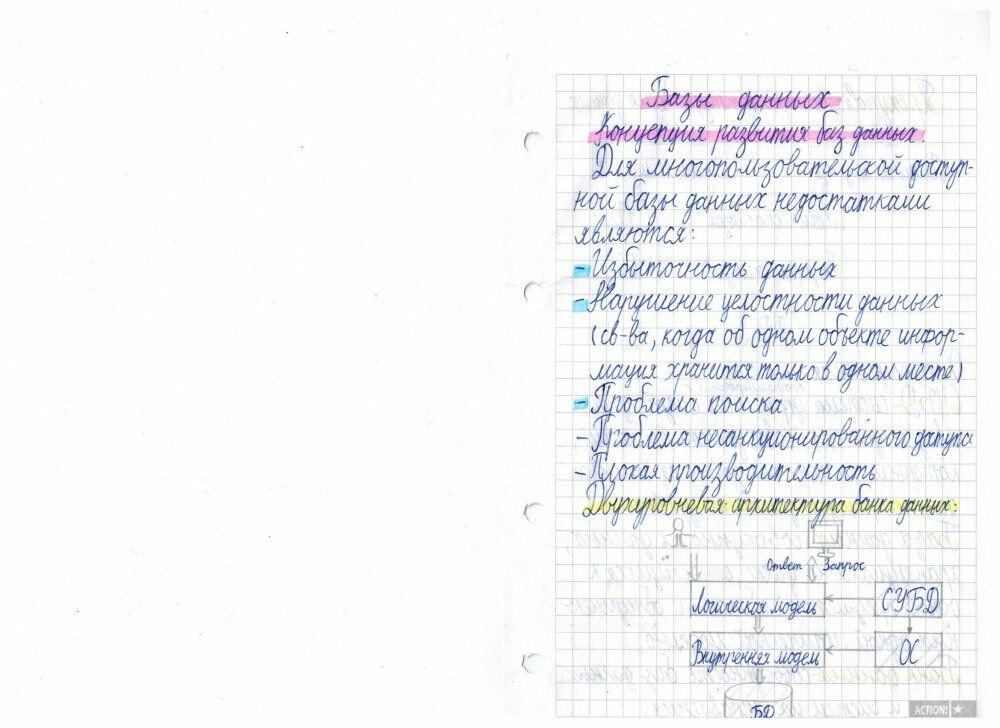 Базы данных
Концепция развития баз данных.
Для многопользовательской доступ-
ной базы данных недостатками
являются:
- Избыточность данных
- Нарушение целостности данных
(св-ва, когда об одном объекте инфор-
мация хранится только в одном месте)
- Проблема поиска
- Проблема несанкционированного доступа
- Плохая производительность
Двухуровневая архитектура банка данных:
Ответ Запрос
Логическая модель
СУБД
Внутренняя модель
ОС
БД
ACTION!